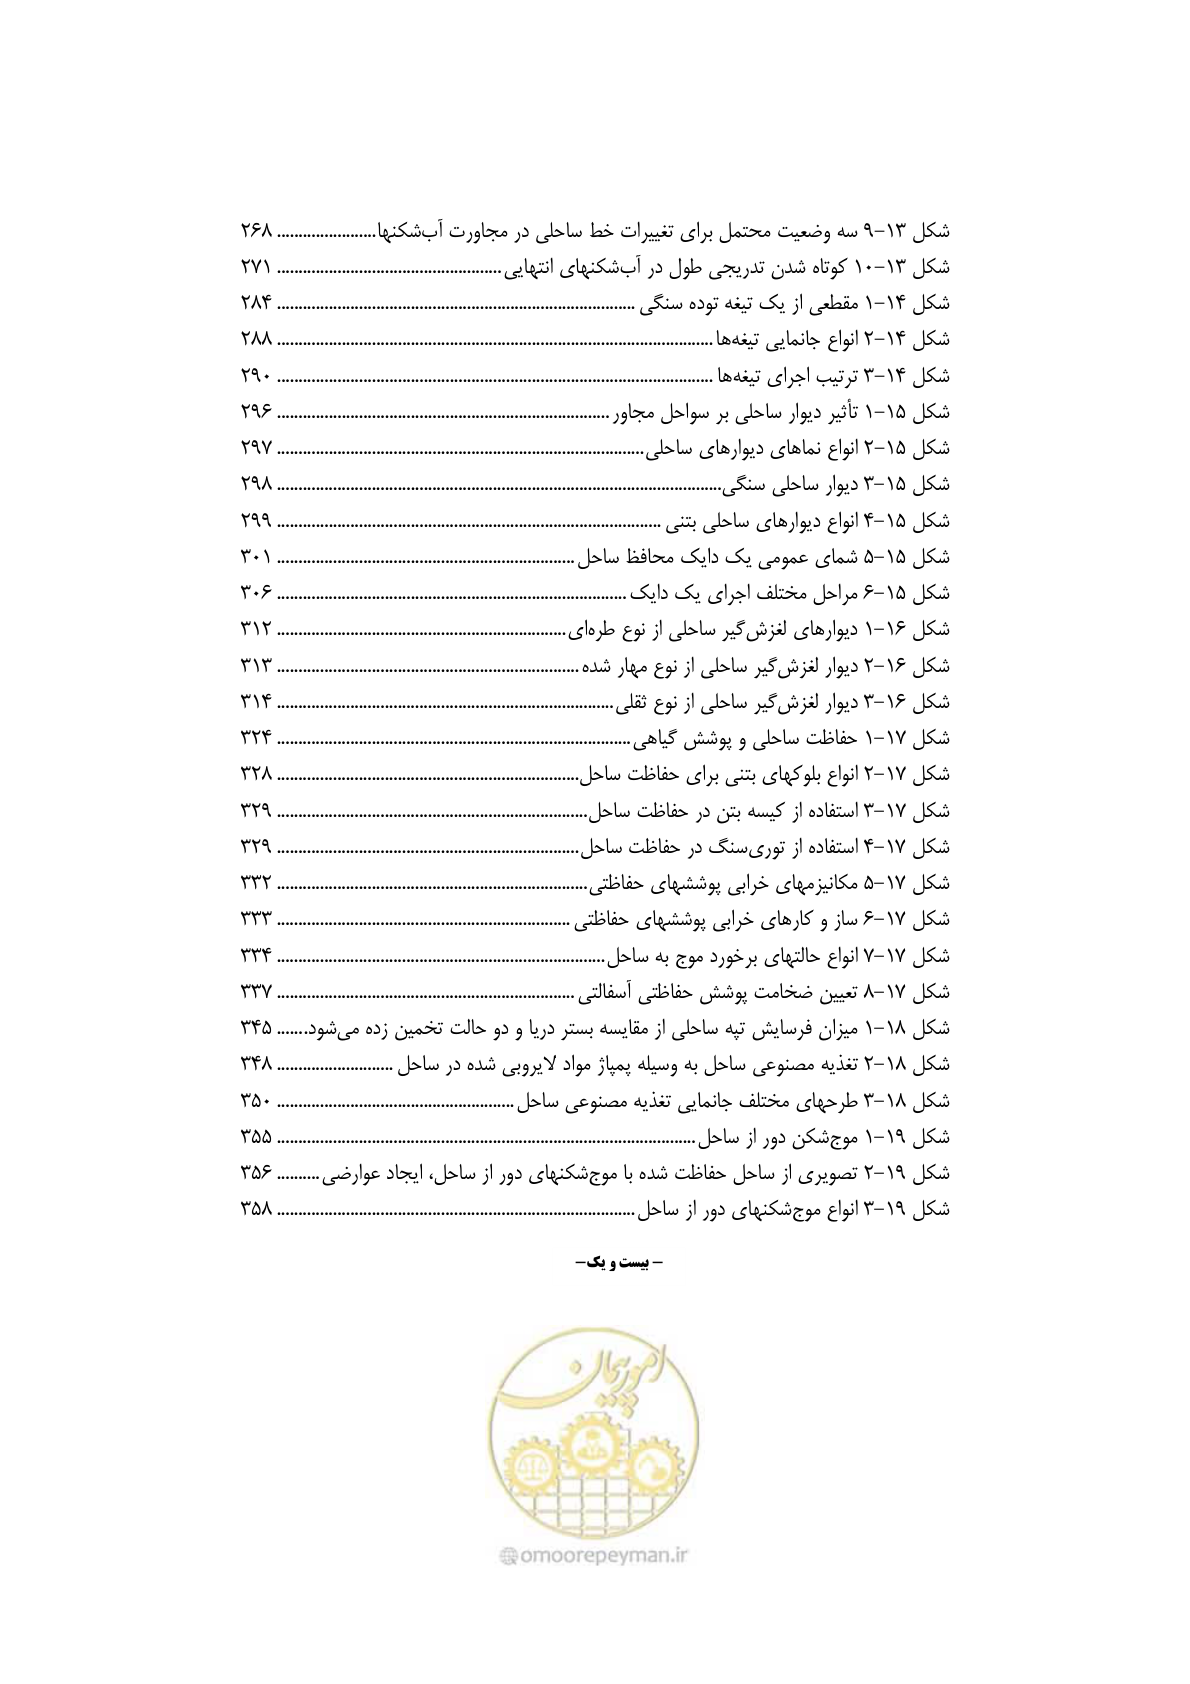 شکل ۱۳-۹ سه وضعیت محتمل برای تغییرات خط ساحلی در مجاورت آب‌شکنها....................... ۲۶۸
شکل ۱۳-۱۰ کوتاه شدن تدریجی طول در آب‌شکنهای انتهایی.................................................... ۲۷۱
شکل ۱۴-۱ مقطعی از یک تیغه توده سنگی ................................................................................... ۲۸۴
شکل ۱۴-۲ انواع جانمایی تیغه‌ها..................................................................................................... ۲۸۸
شکل ۱۴-۳ ترتیب اجرای تیغه‌ها ..................................................................................................... ۲۹۰
شکل ۱۵-۱ تأثیر دیوار ساحلی بر سواحل مجاور ............................................................................. ۲۹۶
شکل ۱۵-۲ انواع نماهای دیوارهای ساحلی..................................................................................... ۲۹۷
شکل ۱۵-۳ دیوار ساحلی سنگی....................................................................................................... ۲۹۸
شکل ۱۵-۴ انواع دیوارهای ساحلی بتنی ......................................................................................... ۲۹۹
شکل ۱۵-۵ شمای عمومی یک دایک محافظ ساحل ..................................................................... ۳۰۱
شکل ۱۵-۶ مراحل مختلف اجرای یک دایک ................................................................................. ۳۰۶
شکل ۱۶-۱ دیوارهای لغزش‌گیر ساحلی از نوع طره‌ای................................................................... ۳۱۲
شکل ۱۶-۲ دیوار لغزش‌گیر ساحلی از نوع مهار شده ...................................................................... ۳۱۳
شکل ۱۶-۳ دیوار لغزش‌گیر ساحلی از نوع ثقلی.............................................................................. ۳۱۴
شکل ۱۷-۱ حفاظت ساحلی و پوشش گیاهی .................................................................................. ۳۲۴
شکل ۱۷-۲ انواع بلوکهای بتنی برای حفاظت ساحل...................................................................... ۳۲۸
شکل ۱۷-۳ استفاده از کیسه بتن در حفاظت ساحل........................................................................ ۳۲۹
شکل ۱۷-۴ استفاده از توری‌سنگ در حفاظت ساحل...................................................................... ۳۲۹
شکل ۱۷-۵ مکانیزمهای خرابی پوششهای حفاظتی........................................................................ ۳۳۲
شکل ۱۷-۶ ساز و کارهای خرابی پوششهای حفاظتی .................................................................... ۳۳۳
شکل ۱۷-۷ انواع حالتهای برخورد موج به ساحل............................................................................ ۳۳۴
شکل ۱۷-۸ تعیین ضخامت پوشش حفاظتی آسفالتی ..................................................................... ۳۳۷
شکل ۱۸-۱ میزان فرسایش تپه ساحلی از مقایسه بستر دریا و دو حالت تخمین زده می‌شود....... ۳۴۵
شکل ۱۸-۲ تغذیه مصنوعی ساحل به وسیله پمپاژ مواد لایروبی شده در ساحل ........................... ۳۴۸
شکل ۱۸-۳ طرحهای مختلف جانمایی تغذیه مصنوعی ساحل ....................................................... ۳۵۰
شکل ۱۹-۱ موج‌شکن دور از ساحل................................................................................................. ۳۵۵
شکل ۱۹-۲ تصویری از ساحل حفاظت شده با موج‌شکنهای دور از ساحل، ایجاد عوارضی.......... ۳۵۶
شکل ۱۹-۳ انواع موج‌شکنهای دور از ساحل................................................................................... ۳۵۸
- بیست و یک-
امور پیمان
@omoorepeyman.ir